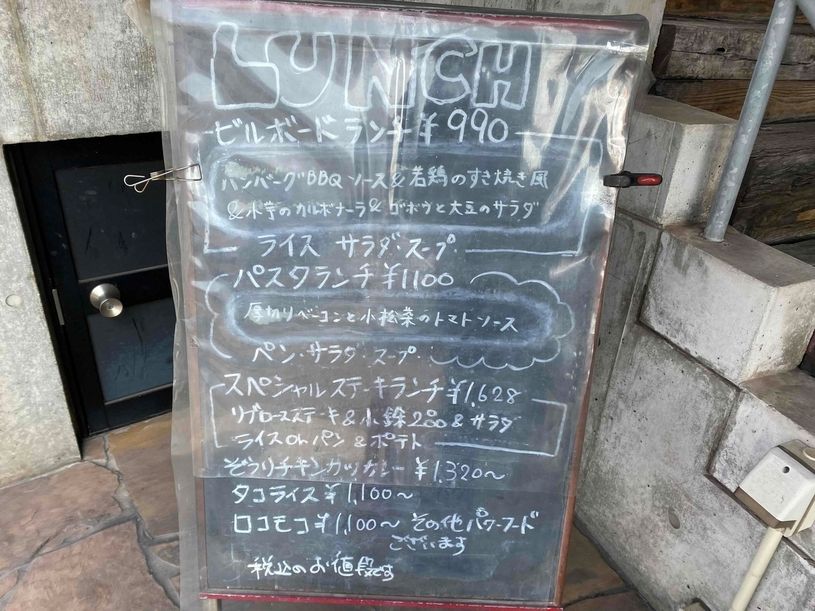 LUNCH
ビルボードランチ ¥990
ハンバーグBBQソース&若鶏のすき焼き風
&水芋のカルボナーラ&ゴボウと大豆のサラダ
ライス サラダ・スープ
パスタランチ ¥1100
厚切りベーコンと小松菜のトマトソース
ペン・サラダ・スープ
スペシャルステーキランチ ¥1,628
リブロースステーキ&小鉢2コ&サラダ
ライスorパン&ポテト
ぞうりチキンカツカレー ¥1,320〜
タコライス ¥1,100〜
ロコモコ ¥1,100〜 その他パワーフード
ございます
税込のお値段です